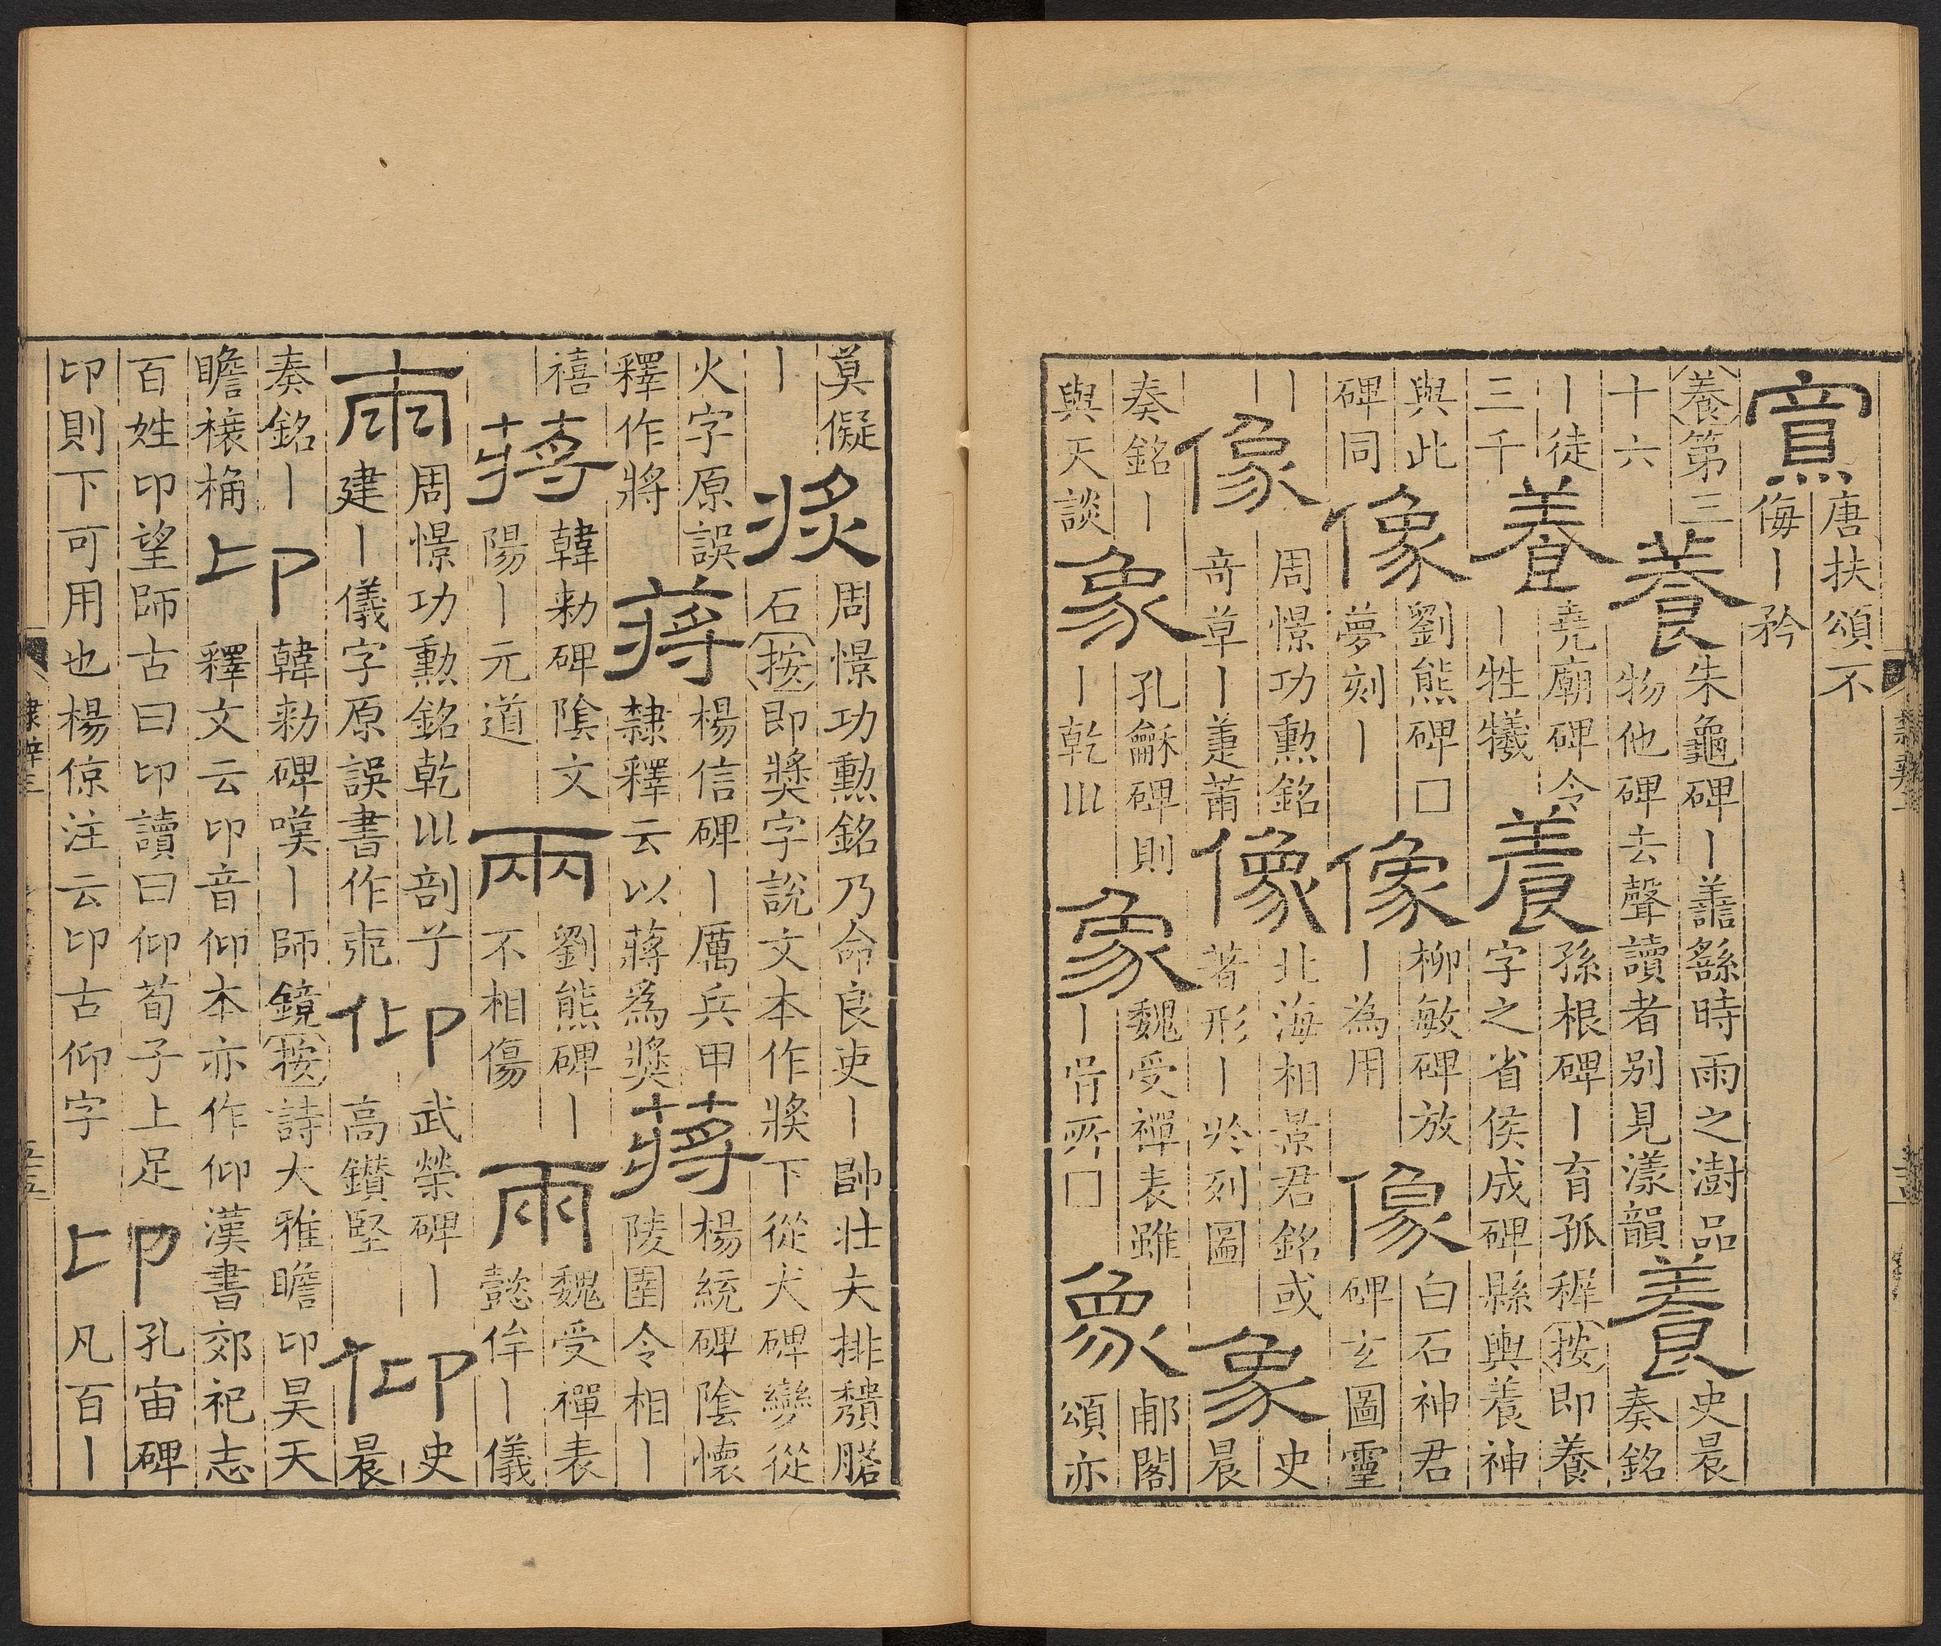 唐扶頌不
侮丨矜
養第三
十六
養
朱龜碑丨譱繇時雨之澍品
物他碑去聲讀者别見漾韻
養
史晨
奏銘
丨徒
三千
養
堯廟碑令
丨牲犧
養
孫根碑丨育孤稺按即養
字之省侯成碑縣輿養神
與此
碑同
像
劉熊碑□
夢刻丨
像
柳敏碑放
丨為用
像
白石神君
碑玄圖靈
丨
像
周憬功勲銘
奇草丨萐莆
像
北海相景君銘或
著形丨於列圖
象
史
晨
奏銘丨
與天談
象
孔龢碑則
丨乾巛
象
魏受禪表雖
丨呰所□
象
郙閣
頌亦
莫儗
丨
周憬功勲銘乃命良吏丨帥壯夫排穨
石按即奬字說文本作㢡下從犬碑變從
火字原誤
釋作將
蔣
楊信碑丨厲兵甲
隸釋云以蔣為奬
蔣
楊統碑陰懷
陵圉令相丨
禧
蔣
韓勑碑陰文
陽丨元道
兩
劉熊碑丨
不相傷
兩
魏受禪表
懿侔丨儀
兩
周憬功勲銘乾巛剖兮
建丨儀字原誤書作
仰
武榮碑丨
高鑚堅
仰
史
晨
奏銘丨
瞻榱桷
卬
韓勑碑嘆丨師鏡按詩大雅瞻卬昊天
釋文云卬音仰本亦作仰漢書郊祀志
百姓卬望師古曰卬讀曰仰荀子上足
卬則下可用也楊倞注云卬古仰字
卬
孔宙碑
凡百丨
隸辨三
五十五